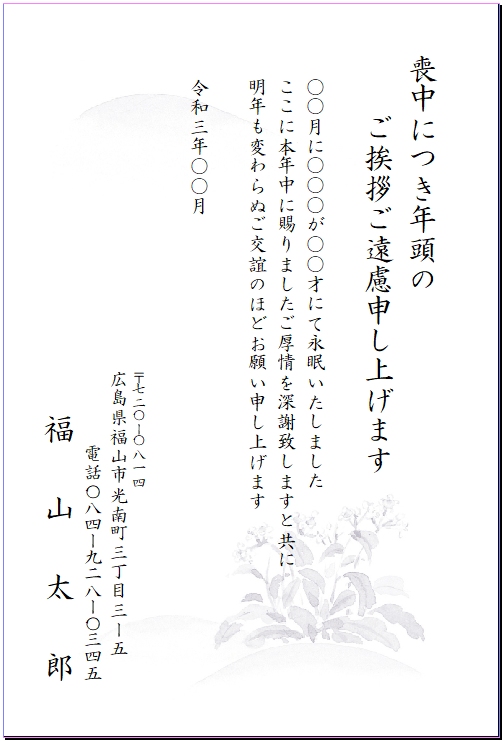 喪中につき年頭の
ご挨拶ご遠慮申し上げます
〇〇月に〇〇〇が〇〇才にて永眠いたしました
ここに本年中に賜りましたご厚情を深謝致しますと共に
明年も変わらぬご交誼のほどお願い申し上げます
令和三年〇〇月
〒七二〇ー〇八一四
広島県福山市光南町三丁目三ー五
電話〇八四ー九二八ー〇三四五
福山太郎